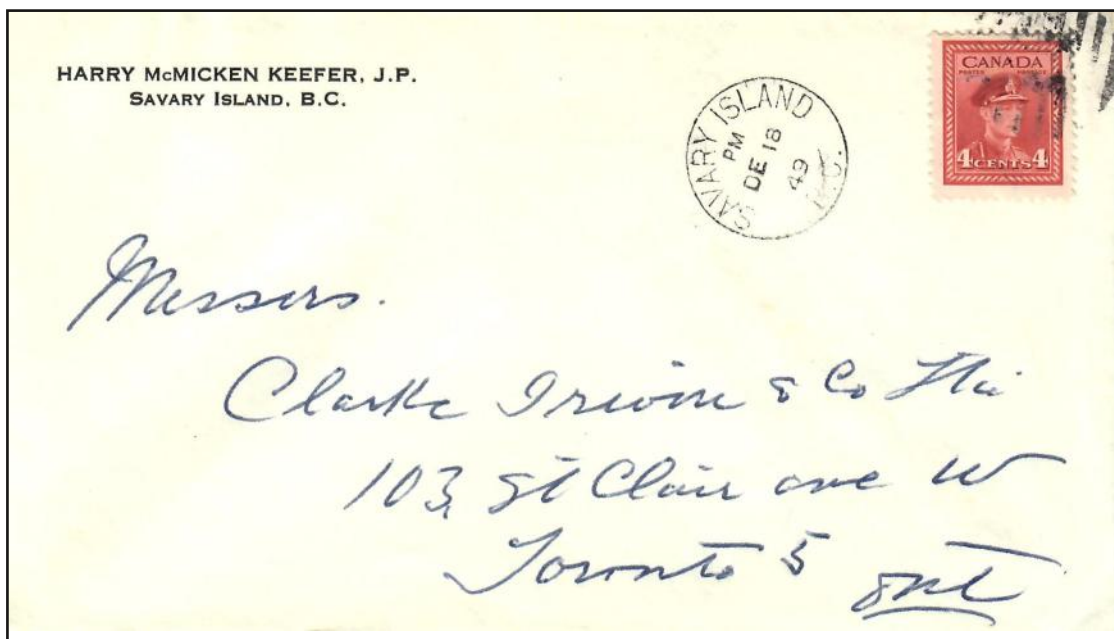 HARRY McMICKEN KEEFER, J.P.
SAVARY ISLAND, B.C.
SAVARY ISLAND
PM
DE 18
49
B.C.
CANADA
POSTES POSTAGE
4 CENTS 4
Messers.
Clarke Irwin & Co Ltd
103, St Clair ave W
Toronto 5
Ont